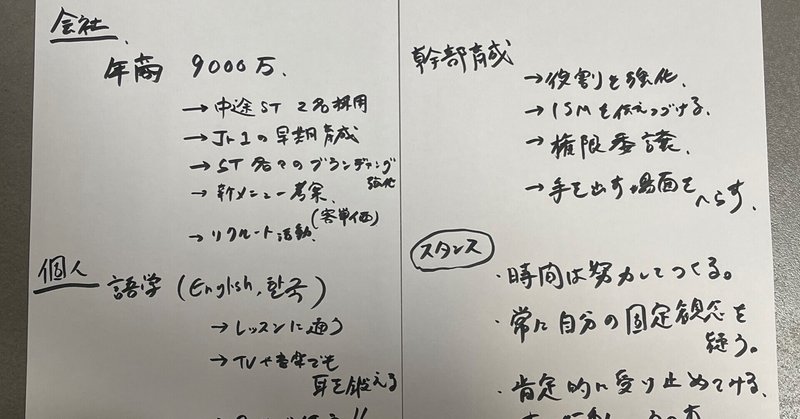 会社
年商 9000万.
→ 中途ST 2名採用
→ Jr1の早期育成
→ ST各々のブランディング
強化
→ 新メニュー考案.
(客単価)
→ リクルート活動.
個人
語学 (English, 한국)
→ レッスンに通う
→ TVや音楽でも
耳を鍛える
幹部育成
→ 役割を強化.
→ ISMを伝えつづける.
→ 権限委譲.
→ 手を出す場面を
へらす.
スタンス
・時間は努力してつくる。
・常に自分の固定観念を
疑う。
・肯定的に受け止めてける.